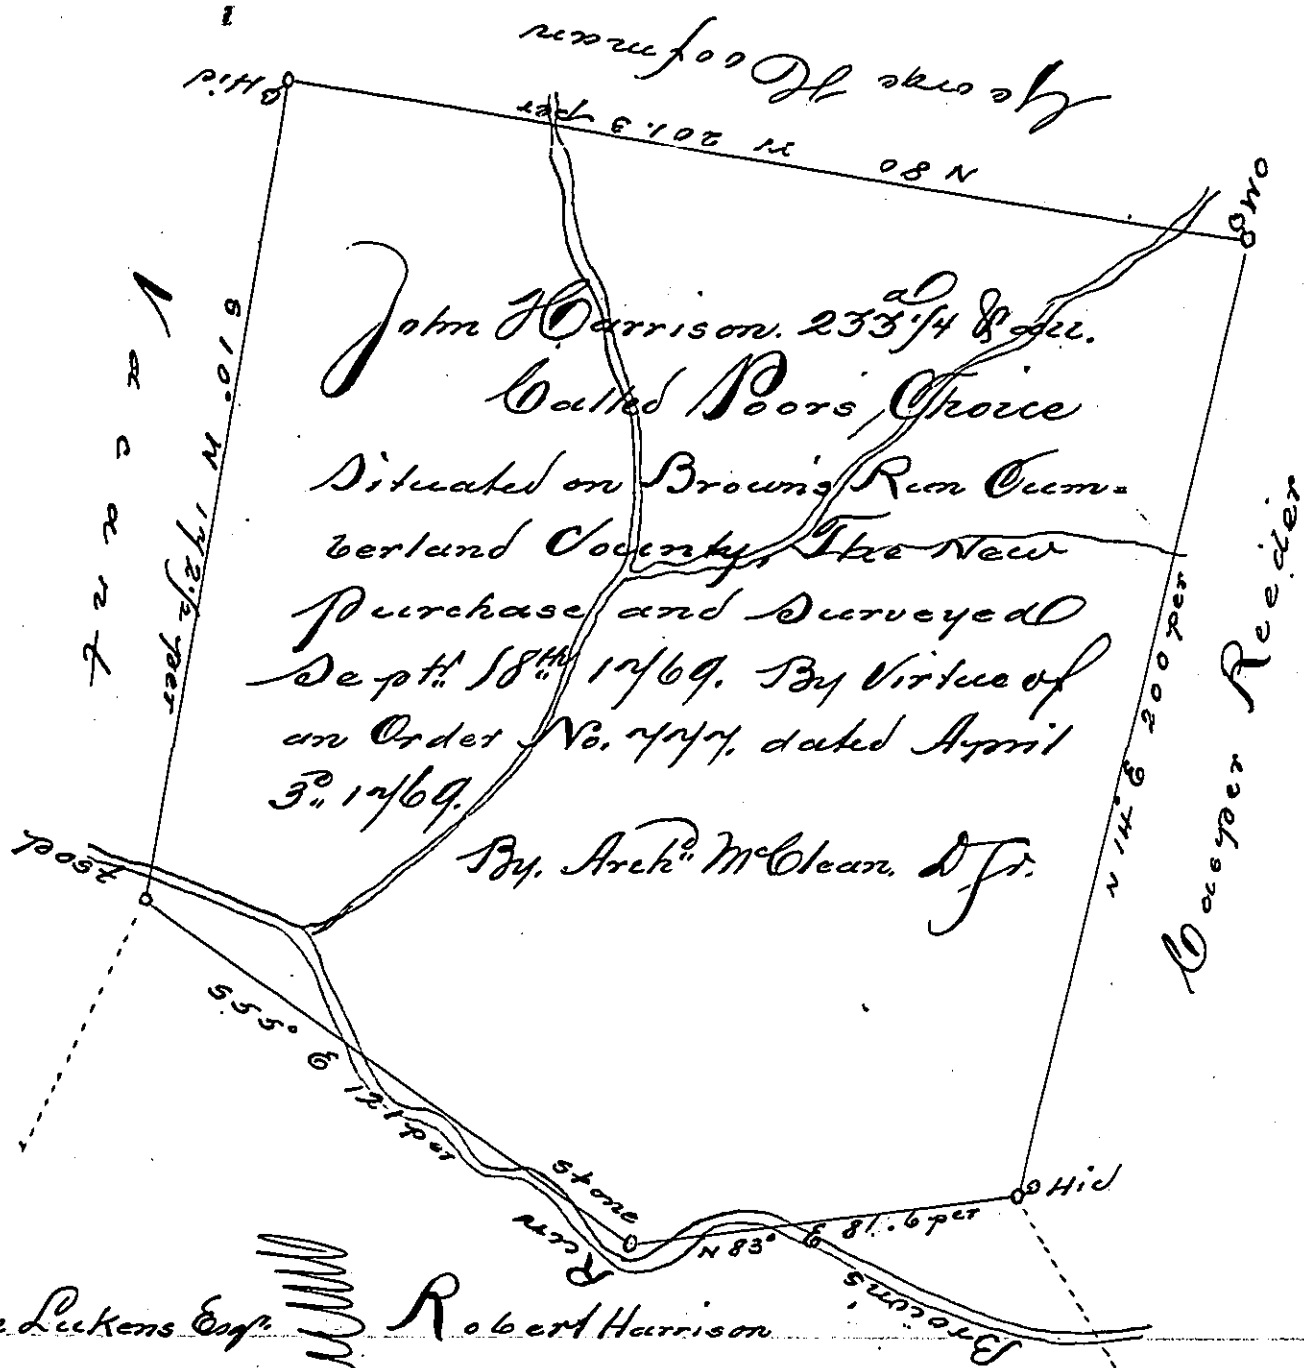 George Hoofman
Hid
N 80 W 201.3 per
WO
Vacant
S 10° W 172½ per
John Harrison. 233a 1/4 & all.
Called Poors Choice
Situated on Browns Run Cum=
berland County, The New
Purchase and Surveyed
Sept. 18th 1769. By Virtue of
an Order No. 777. dated April
3d 1769.
By. Archd McClean. D S r.
N 14° E 200 per
Casper Reeder
Post
S 55° E 121 per
Stone
Hid
N 83° E 81.6 per
Browns Run
Lukens Esqr.
Robert Harrison